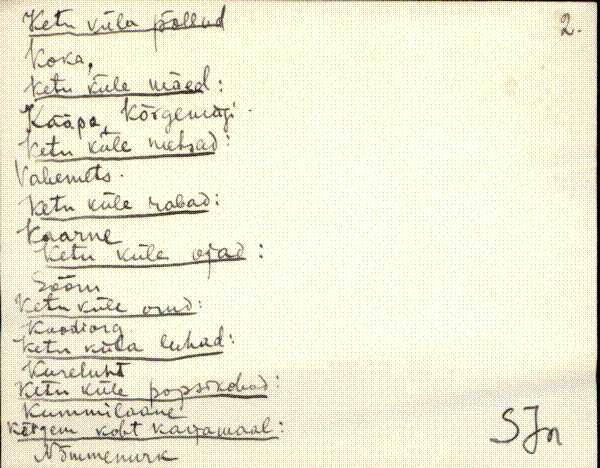 2.
Ketu küla põllud
Koka,
Ketu küle mäed:
Kääpa, Kõrgemägi.
Ketu küle metsad:
Vahemets.
Ketu küle rabad:
Kaarne
Ketu küle ojad:
Sõõru
Ketu küle orud:
Koodiorg
Ketu küla luhad:
Kureluht
Ketu küle popsikohad:
Kummilaane
Kõrgem koht karjamaal:
Nõmmenurk